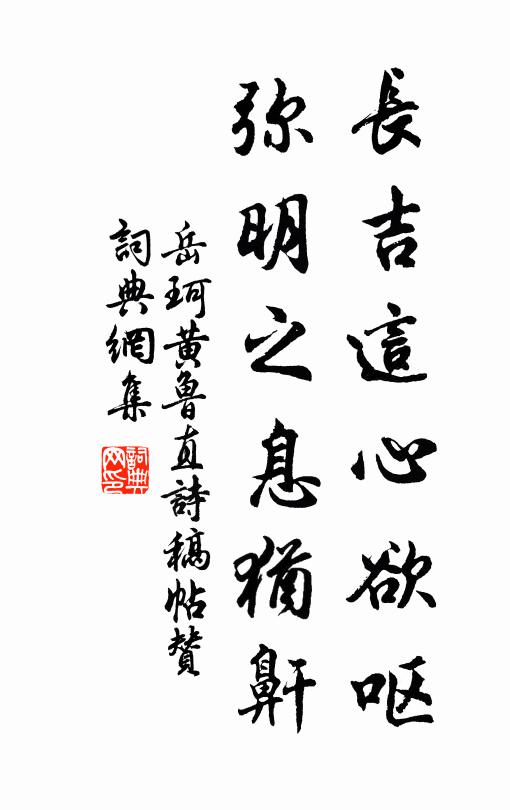 長吉這心欲呕
弥明之息猶鼾
岳珂黄魯直詩稿帖贊
詞典網集
詞典网印